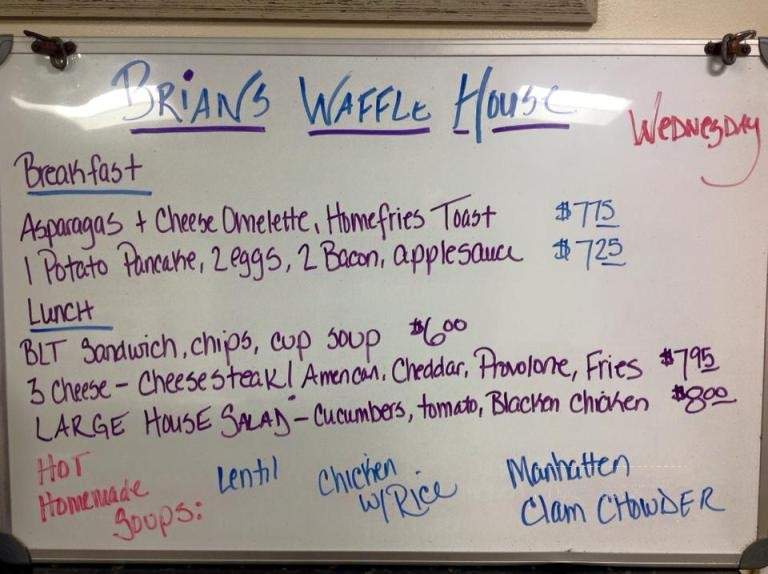 BRiANS WAFFLE HOUSE
WEDNESDAY
Breakfast
Asparagas + Cheese Omelette, Homefries Toast $775
1 Potato Pancake, 2 eggs, 2 Bacon, applesauce $725
Lunch
BLT Sandwich, chips, cup soup $600
3 Cheese - Cheesesteak / American, Cheddar, Provolone, Fries $795
LARGE HOUSE SALAD - Cucumbers, tomato, Blacken Chicken $800
HOT
Homemade
Soups:
Lentil
Chicken
w/Rice
Manhatten
Clam CHOWDER